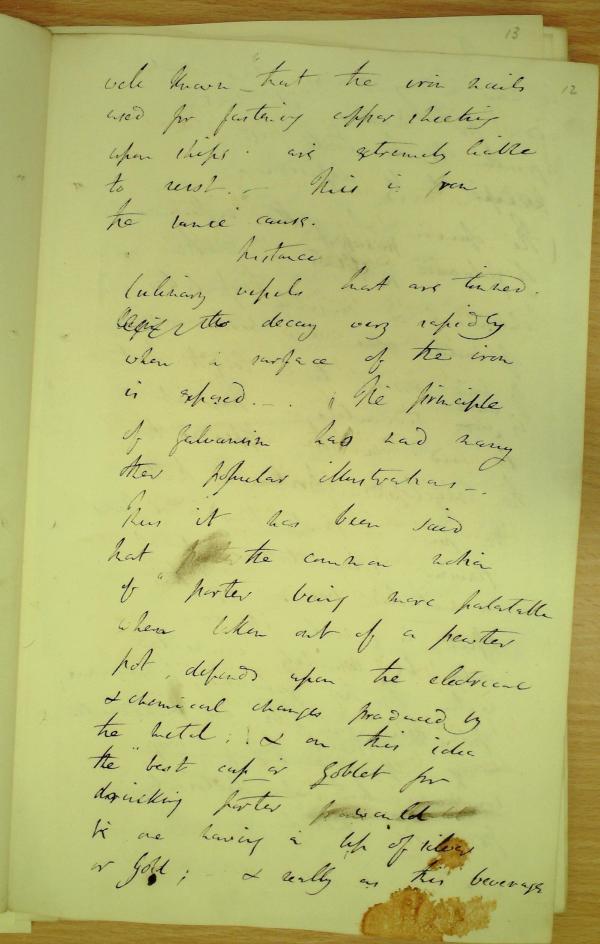 13
12
well known that the iron nails
used for fastening copper sheeting
upon ships. are extremely liable
to rust. - This is from
the same cause.
Instance
Culinary vessels that are tinned.
decay very rapidly
when a surface of the iron
is exposed. - . The principle
of galvanism has had many
other popular illustrations -.
Thus it has been said
that the common notion
of porter being more palatable
when taken out of a pewter
pot, depends upon the electrical
& chemical changes produced by
the metal; & on this idea
the best cup or Goblet for
drinking porter would
be one having a lip of silver
or Gold; - & really as this beverage